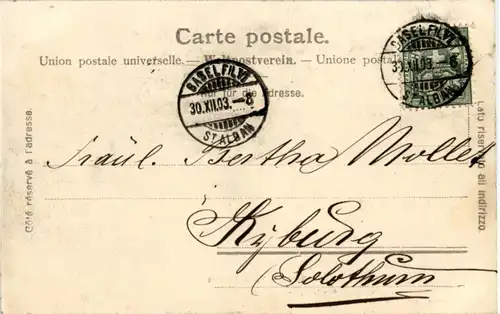 Carte postale.
Union postale universelle. — Weltpostverein. — Unione postale
Nur für die Adresse.
BASEL FIL. VI
30.XII.03.—8
ST. ALBAN
BASEL FIL. VI
30.XII.03.—8
ST. ALBAN
Côté réservé à l'adresse.
Lato riservato all indirizzo.
Fräul. Bertha Mollet
Kyburg
Solothurn